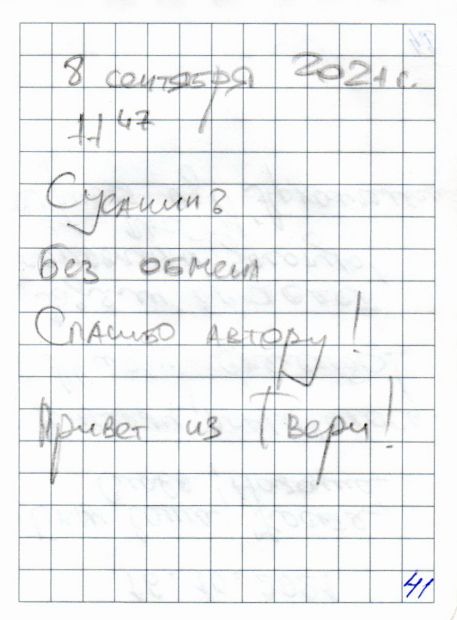 8 сентября 2021 г.
11 47
Сусанинъ
Без обмена
Спасибо автору!
Привет из Твери!
41